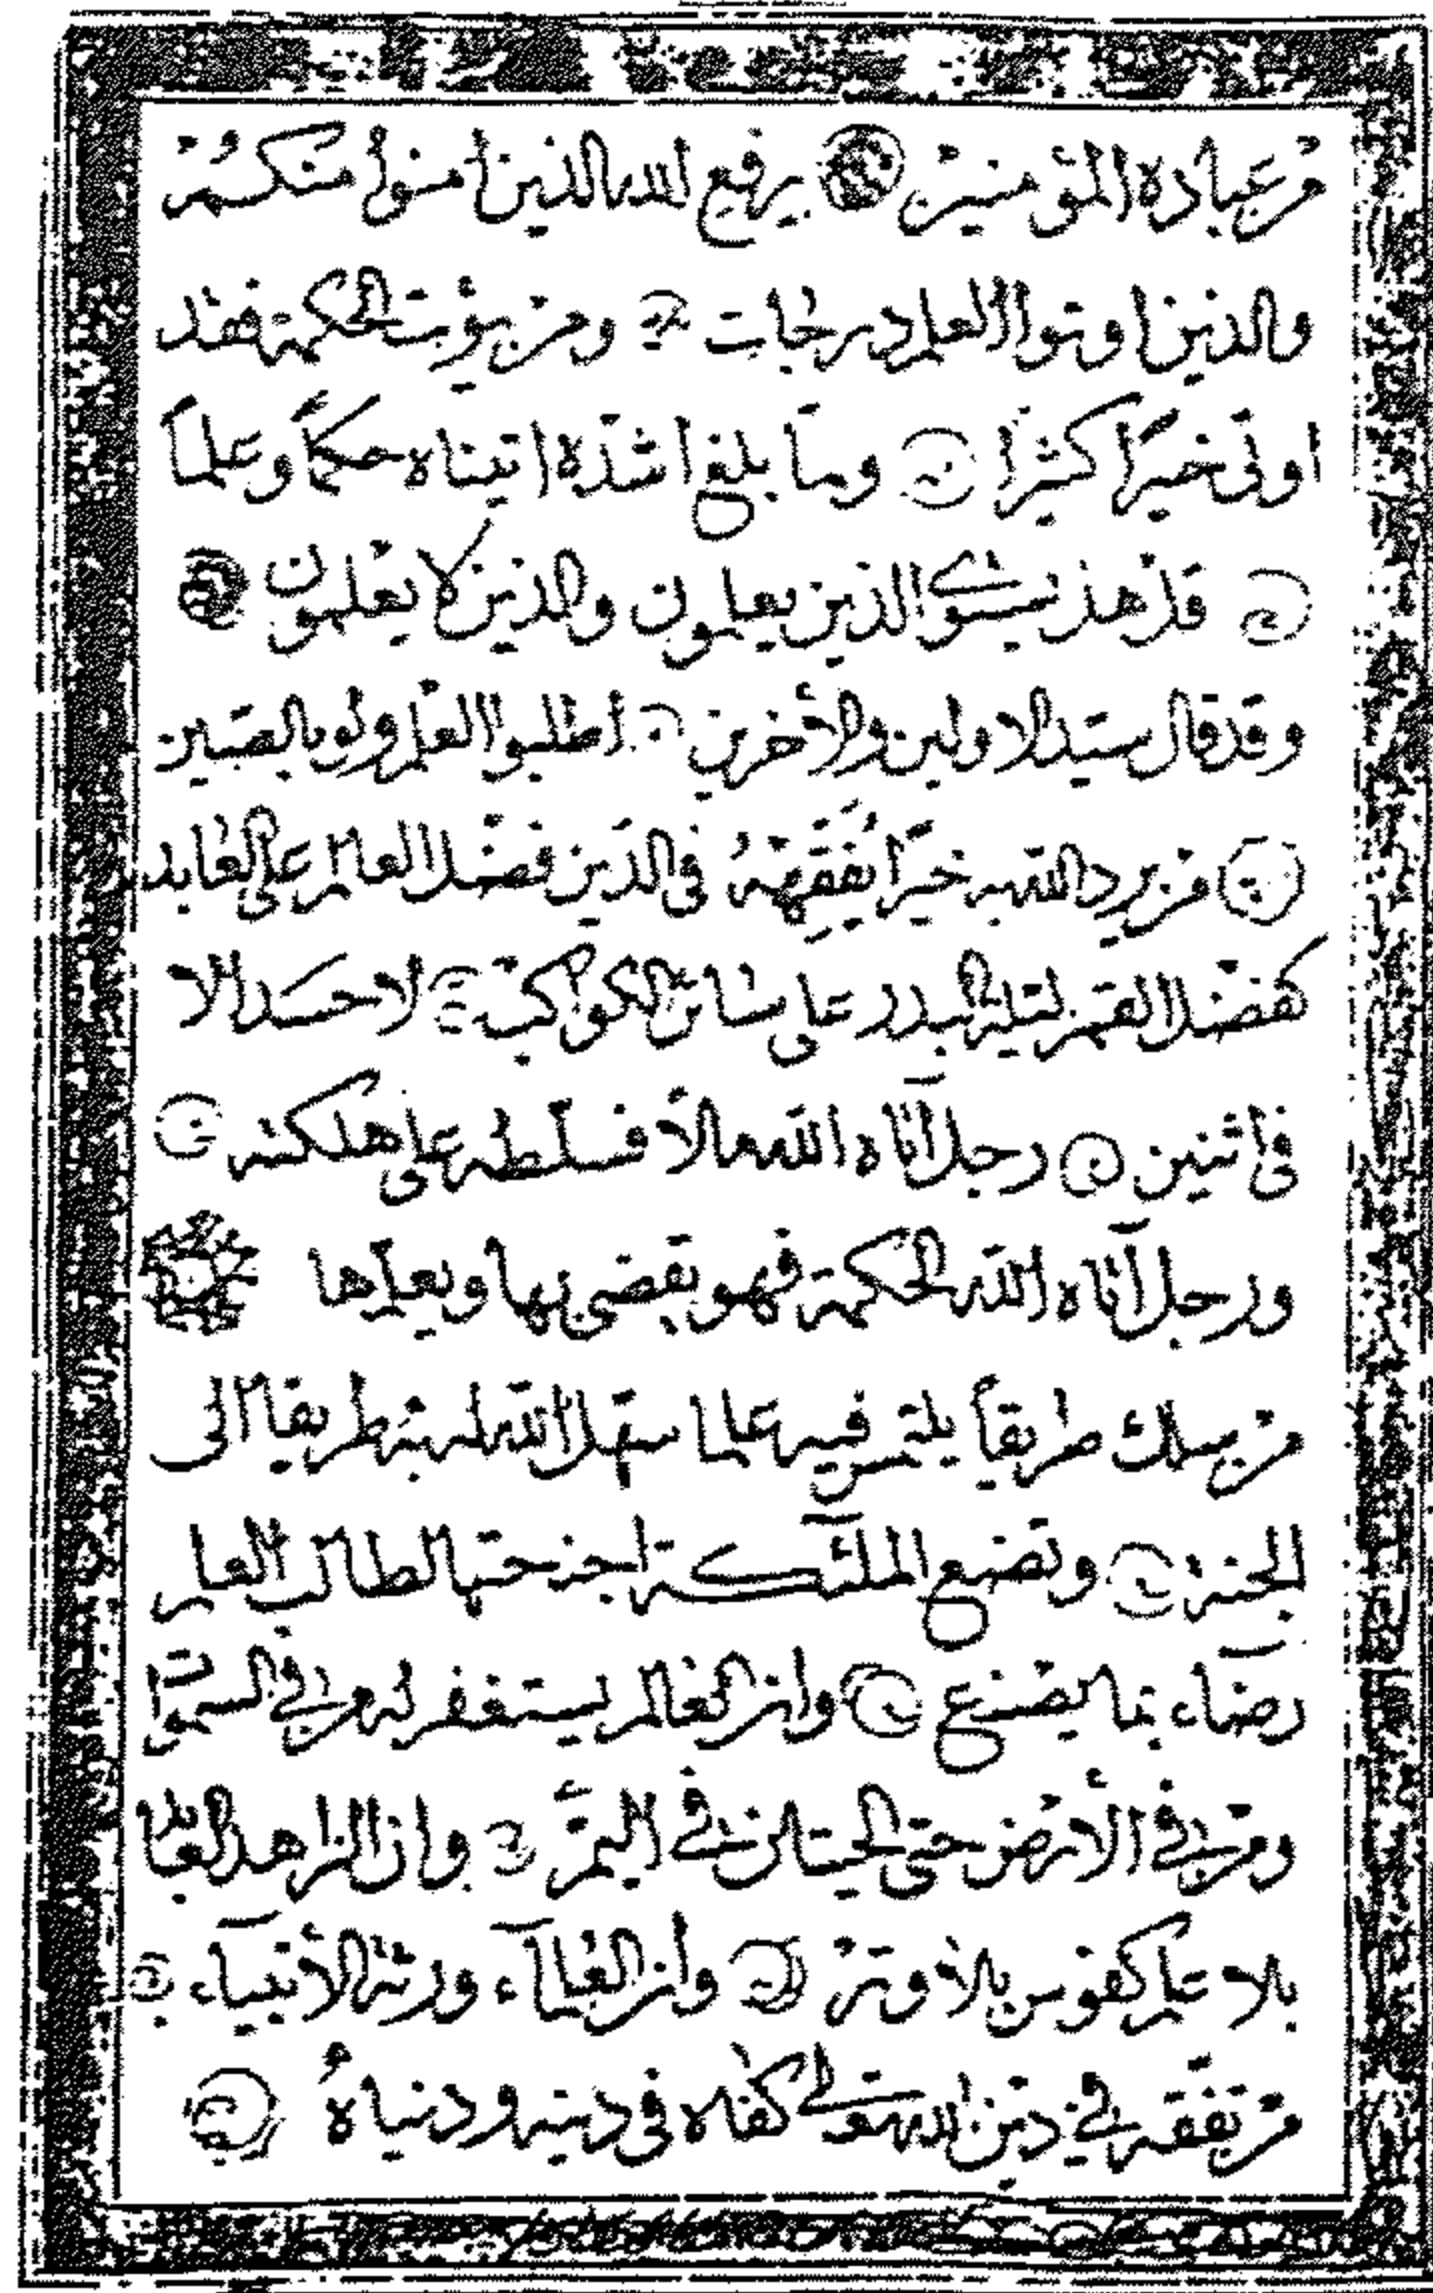 من عباده المؤمنين يرفع الله الذين أمنوا منكم
والذين اوتوا العلم درجات ومن يؤت الحكمة فقد
اوتى خيرًا كثيرًا ولما بلغ اشدّه اتيناه حكمًا وعلمًا
قل هل يستوى الذين يعلمون والذين لا يعلمون
وقد قال سيّد الاولين والأخرين اطلبوا العلم ولو بالصين
من يرد الله به خيرًا يُفَقِّهْهُ فى الدّين فضل العالم على العابد
كفضل القمر ليلة البدر على سائر الكواكب لا حسد الا
فى اثنين رجل آتاه الله مالاً فسلّطه على هلكته
ورجل آتاه الله الحكمة فهو يقضى بها ويعلّمها
من سلك طريقاً يلتمس فيه علما سهّل الله له به طريقا الى
الجنة وتضع الملئكة اجنحتها لطالب العلم
رضآء بما يصنع وان العالم يستغفر له من فى السموات
ومن فى الأرض حتى الحيتان فى اليمّ وان الزاهد العابد
بلا علم كقوس بلا وتر وأن العلمآء ورثة الأنبيآء
من تفقّه فى دين الله تعالى كفاه فى دينه ودنياهُ